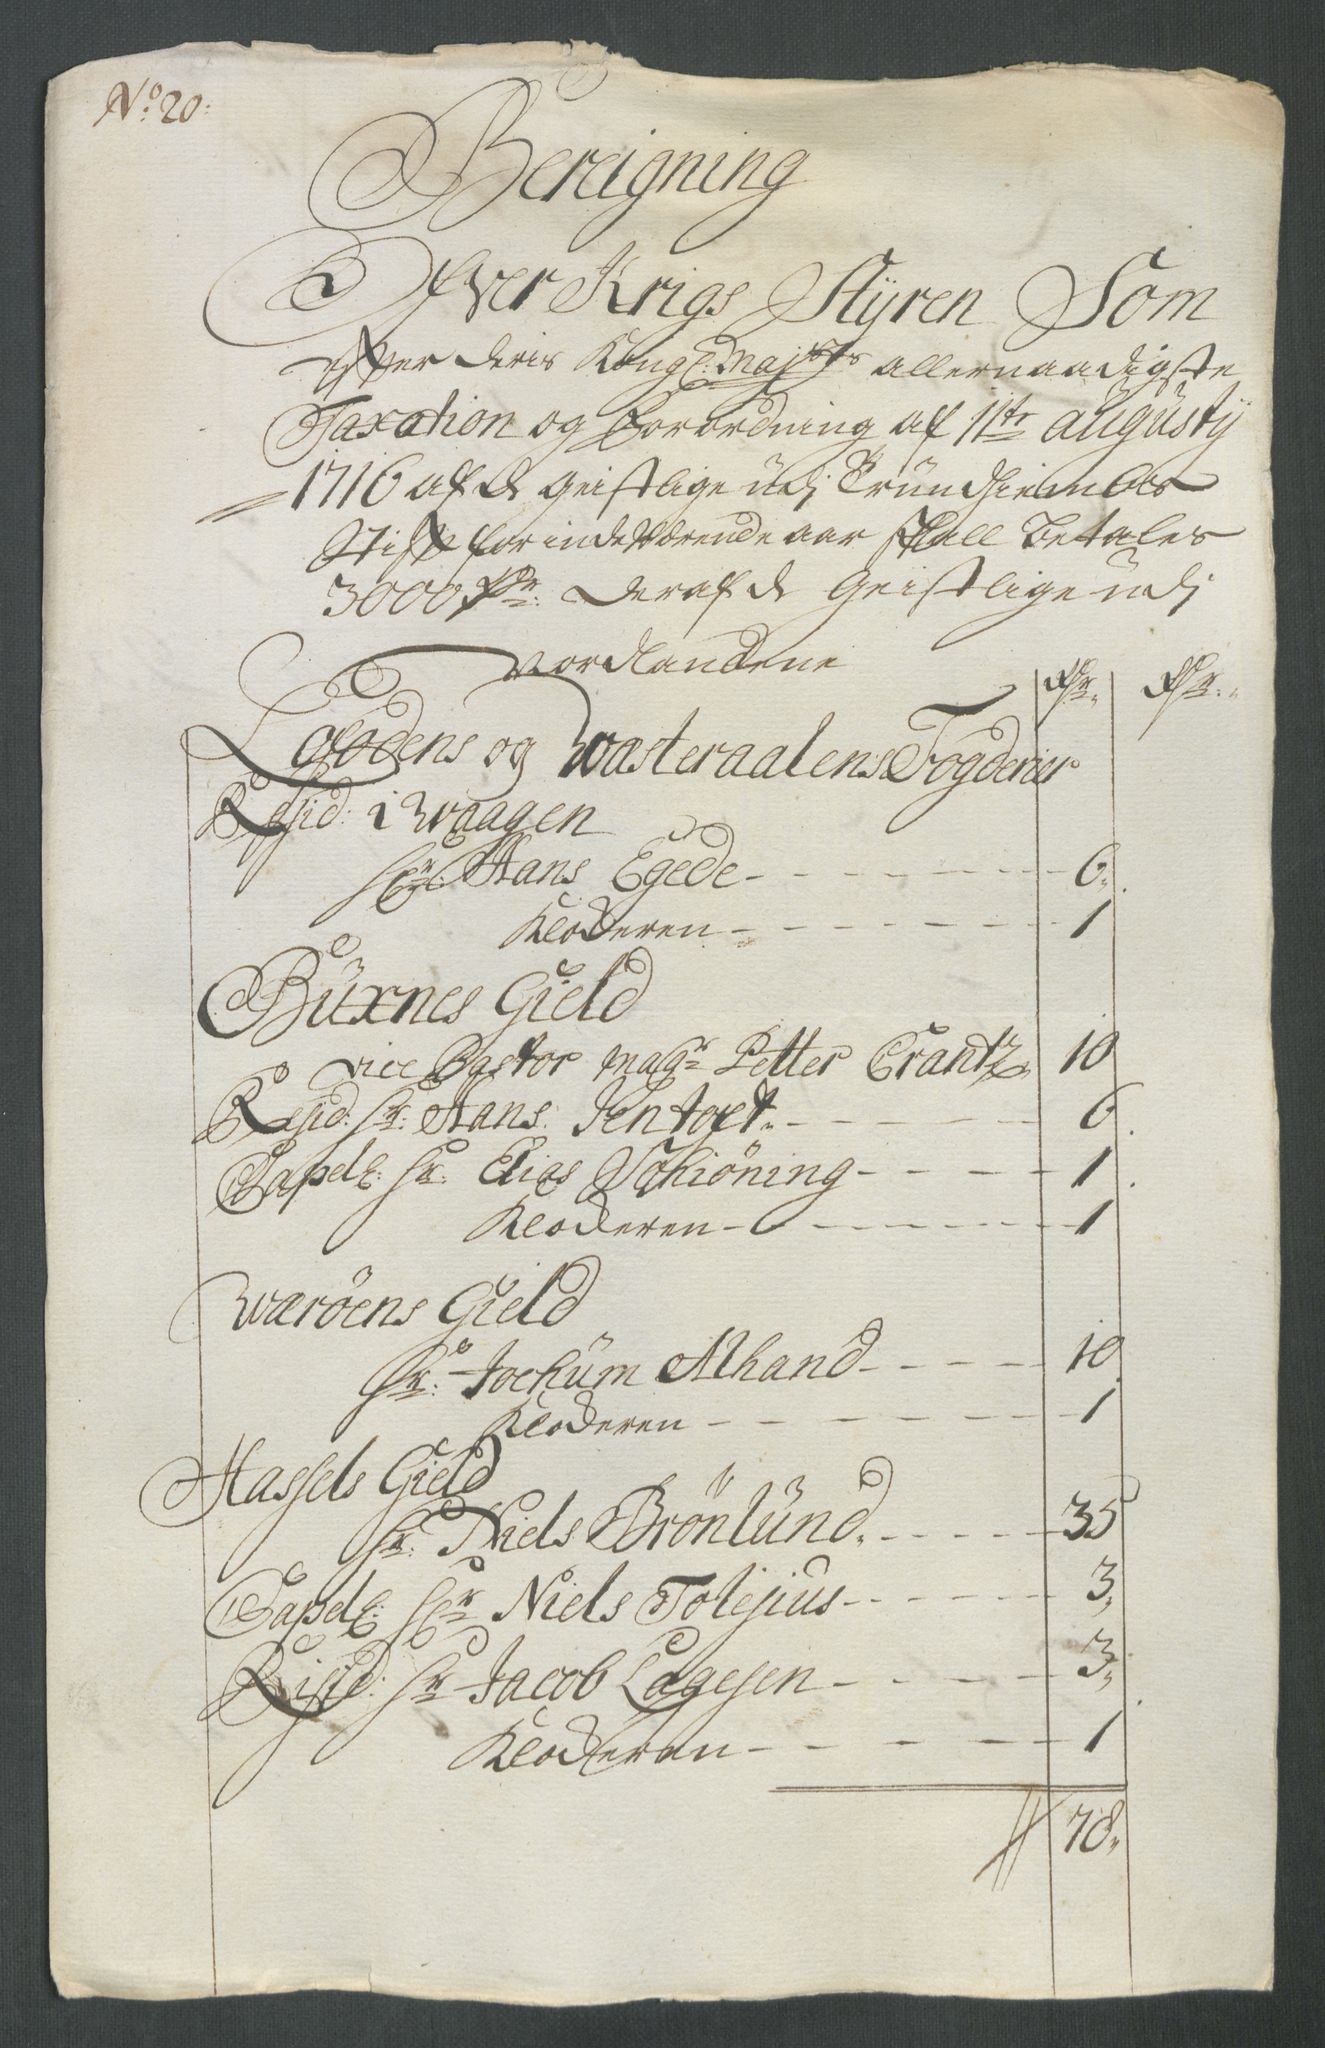 No: 20:
Bereigning
Ofver Krigs Styren Som
efter deris Kongl: Maj:ts allernaadigste
Taxation og Forordning af 11te augusty
1716 af de geistlige udj Trundhiembs
Stift for indeværende aar skall betales
3000 Rdr: deraf de Geistlige udj
Nordlandene
Rdr. Rdr.
Lofodens og Wæsteraalens Fogderier
Resid: i Waagen
Hr: Hans Egede - - - - - - 6
Klocheren - - - - - - 1
Büxnes Gield
vice Pastor magr Petter Crantz 10
Resid: Hr: Hans Jentoft - - - - - 6
Capel: Hr: Elias Schiöning - - - - 1
Klocheren - - - - - - 1
Waröens Gield
Hr: Jochum Alhand - - - - 10
Klocheren - - - - - - 1
Hassels Gield
Hr: Niels Brönlünd - - - - - 35
Capel: Hr Niels Tolesius - - - - - 3
Resid: Hr Jacob Lagesen - - - - 3
Klocheren - - - - - 1
78